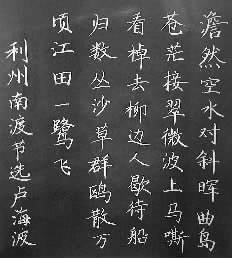 澹然空水对斜晖 曲岛
苍茫接翠微波上马嘶
看棹去柳边人歇待船
归数丛沙草群鸥散万
顷江田一鹭飞
利州南渡节选卢海波